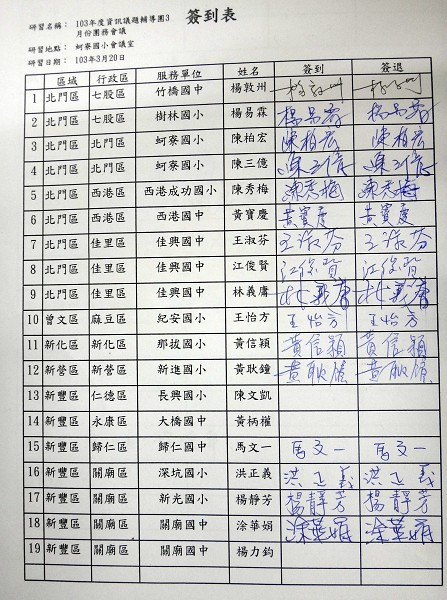 簽到表
研習名稱： 103年度資訊議題輔導團3
月份團務會議
研習地點： 蚵寮國小會議室
研習日期： 103年3月20日
區域 行政區 服務單位 姓名 簽到 簽退
1 北門區 七股區 竹橋國中 楊敦州 楊敦州 楊敦州
2 北門區 七股區 樹林國小 楊易霖 楊易霖 楊易霖
3 北門區 北門區 蚵寮國小 陳柏宏 陳柏宏 陳柏宏
4 北門區 北門區 蚵寮國小 陳三億 陳三億 陳三億
5 北門區 西港區 西港成功國小 陳秀梅 陳秀梅 陳秀梅
6 北門區 西港區 西港國中 黃寶慶 黃寶慶 黃寶慶
7 北門區 佳里區 佳興國中 王淑芬 王淑芬 王淑芬
8 北門區 佳里區 佳興國中 江俊賢 江俊賢 江俊賢
9 北門區 佳里區 佳興國中 林義庸 林義庸 林義庸
10 曾文區 麻豆區 紀安國小 王怡方 王怡方 王怡方
11 新化區 新化區 那拔國小 黃信穎 黃信穎 黃信穎
12 新營區 新營區 新進國小 黃耿鐘 黃耿鐘 黃耿鐘
13 新豐區 仁德區 長興國小 陳文凱
14 新豐區 永康區 大橋國中 黃柄權
15 新豐區 歸仁區 歸仁國中 馬文一 馬文一 馬文一
16 新豐區 關廟區 深坑國小 洪正義 洪正義 洪正義
17 新豐區 關廟區 新光國小 楊靜芳 楊靜芳 楊靜芳
18 新豐區 關廟區 關廟國中 涂華娟 涂華娟 涂華娟
19 新豐區 關廟區 關廟國中 楊力鈞